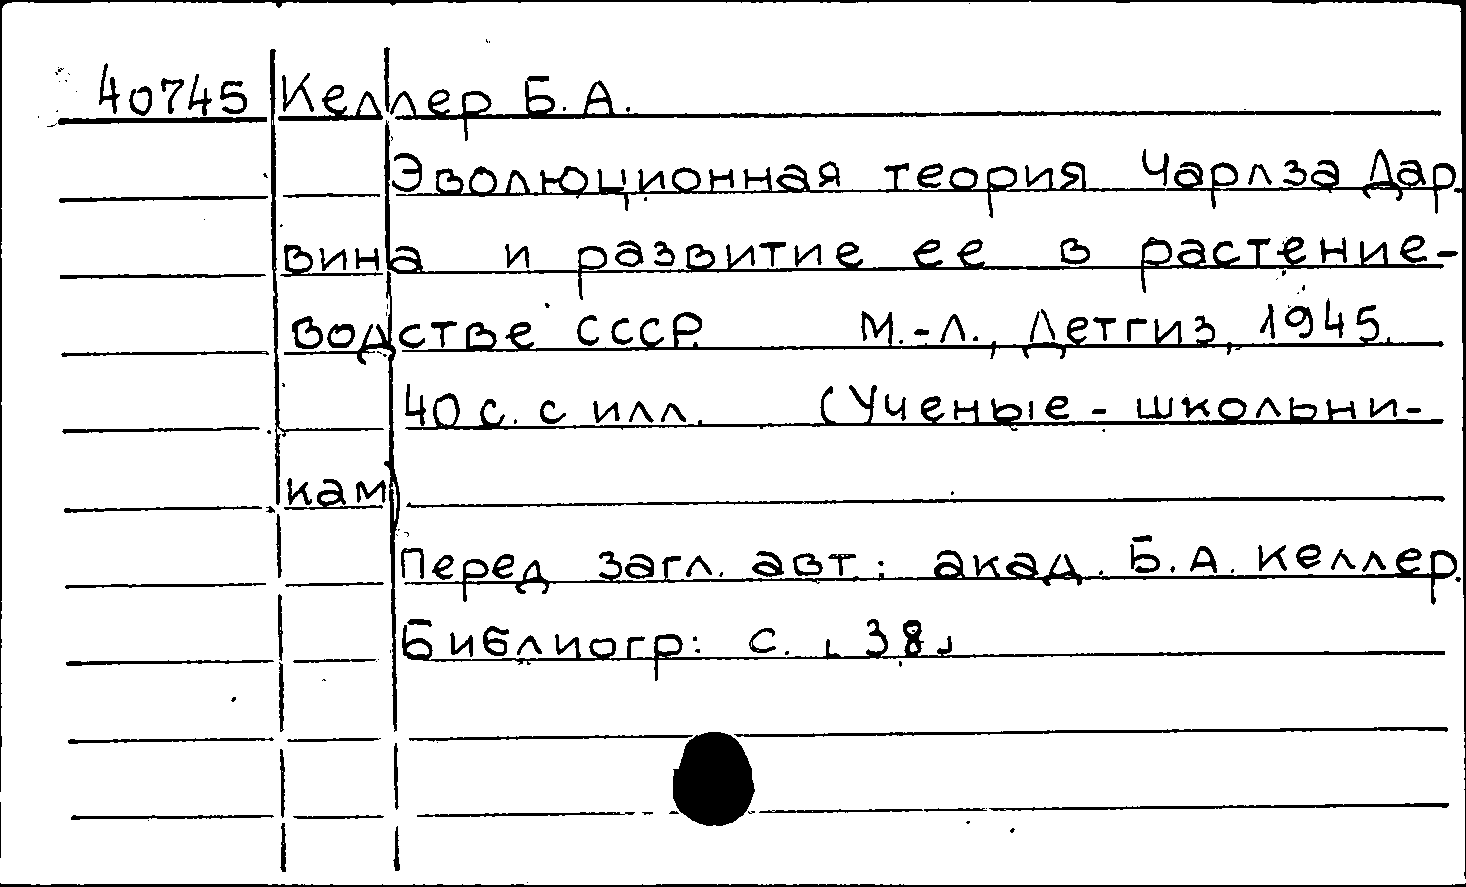 40745 Келлер Б. А.
Эволюционная теория Чарлза Дар-
вина и развитие ее в растение-
водстве СССР. М.-Л., Детгиз, 1945.
40 с. с илл. (Ученые - школьни-
кам)
Перед загл. авт.: акад. Б. А. Келлер.
Библиогр: с. ⌞38⌟